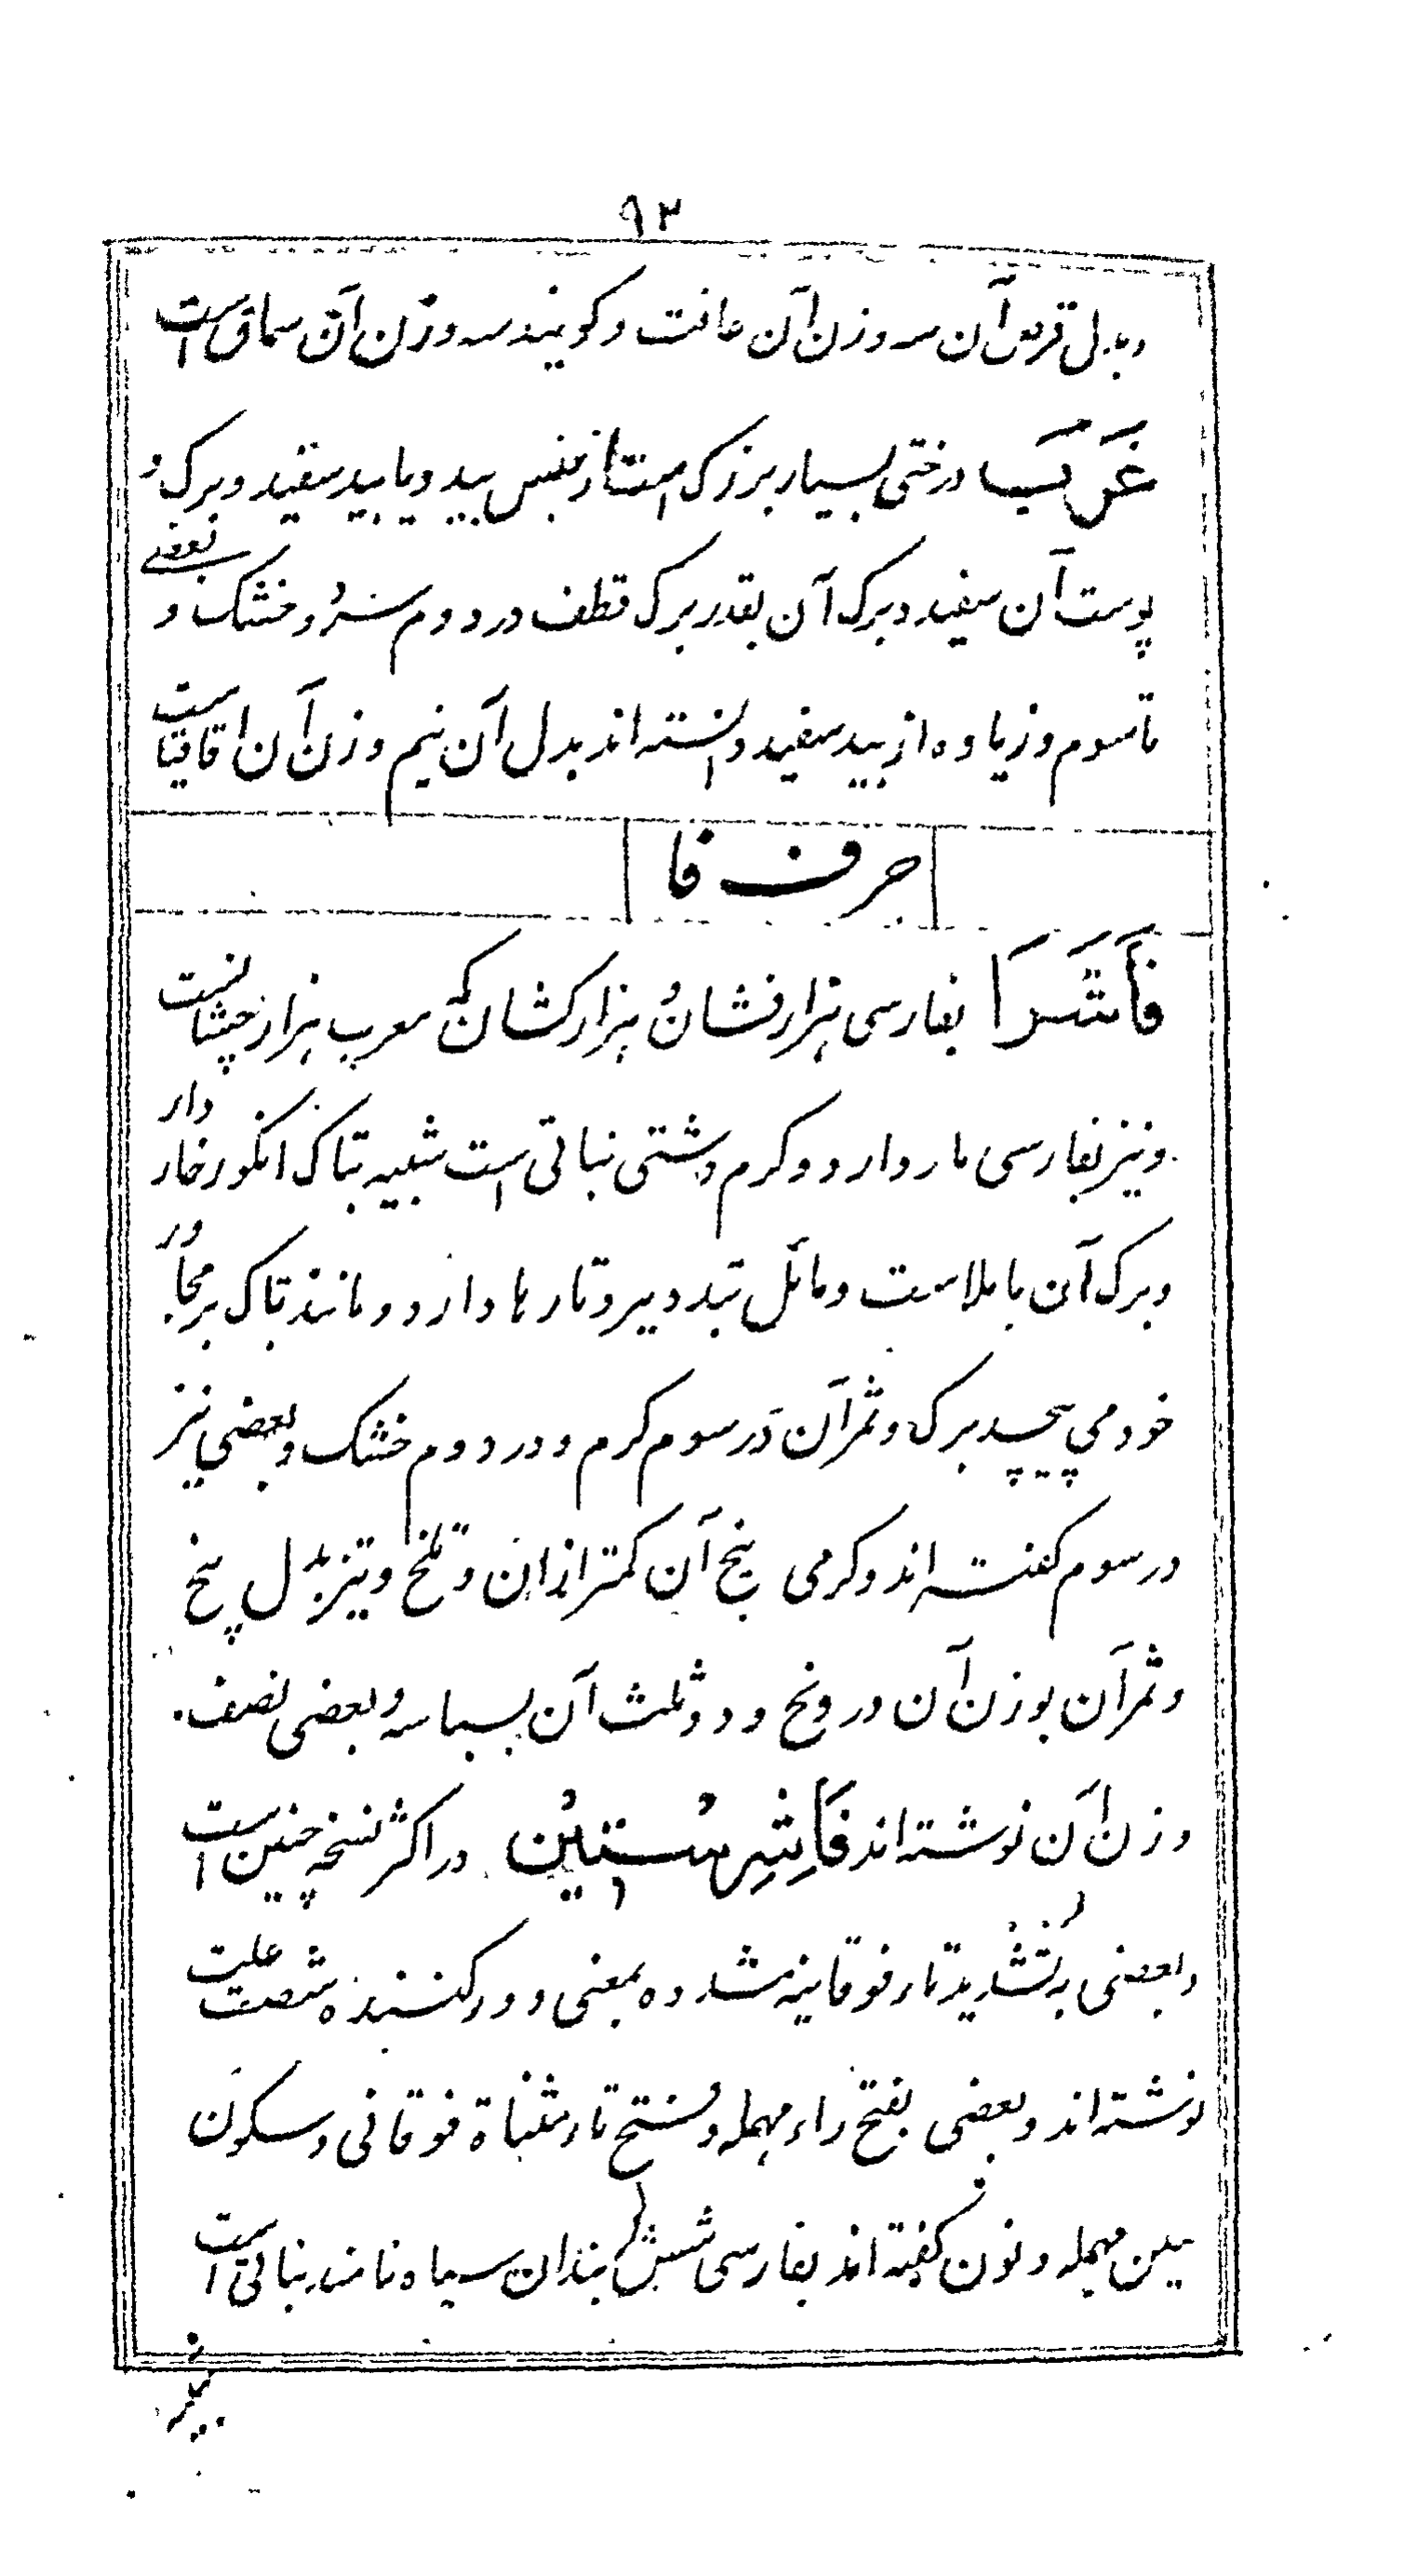 ۹۲
وبدل قرص آن سه وزن آن عافت وکویند سه وزن آن سماق است
غَرَب درختی بسیار بزرک است از جنس بید ویا بید سفید وبرک و
پوست آن سفید وبرک آن بقدر برک قطف در دوم سرد وخشک و بعضی
تا سوم وزیاده از بید سفید دانسته اند بدل آن نیم وزن آن اقاقیا است
حرف فا
فَاشَرَا بفارسی هزار فشان و هزار کشان که معرب هزار چشانست
ونیز بفارسی مار دارو و کرم دشتی نباتی است شبیه بتاک انکور خار دار
وبرک آن با ملاست ومائل بتدویر وتارها دارد ومانند تاک بر مجاور
خود می پیچد برک وثمر آن در سوم کرم ودر دوم خشک وبعضی نیز
در سوم کفته اند وکرمی بیخ آن کمتر ازان وتلخ وتیز بدل بیخ
وثمر آن بوزن آن درونج ودو ثلث آن بسباسه وبعضی نصف
وزن آن نوشته اند فَاشِرِسْتِیْن در اکثر نسخه چنین است
وبعضی بتشدید تاء فوقانیه مشدده بمعنی دور کننده شصت علت
نوشته اند وبعضی بفتح راء مهمله وفتح تاء مثناة فوقانی وسکون
سین مهمله ونون کفته اند بفارسی شش بندان سیاه نامند نباتی است